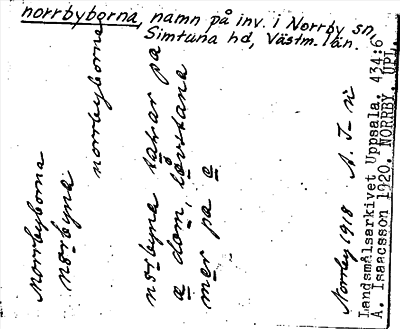 norrbyborna, namn på inv. i Norrby sn,
Simtuna hd, Västm. län.
norrbyborna
Norrbyborna
norbyna
norbyna talar på
a dom, lövstana
mer på e
Norrby 1918 A. I-n
Landsmålsarkivet Uppsala. 434:6
A. Isaacsson 1920. NORRBY. UPL.